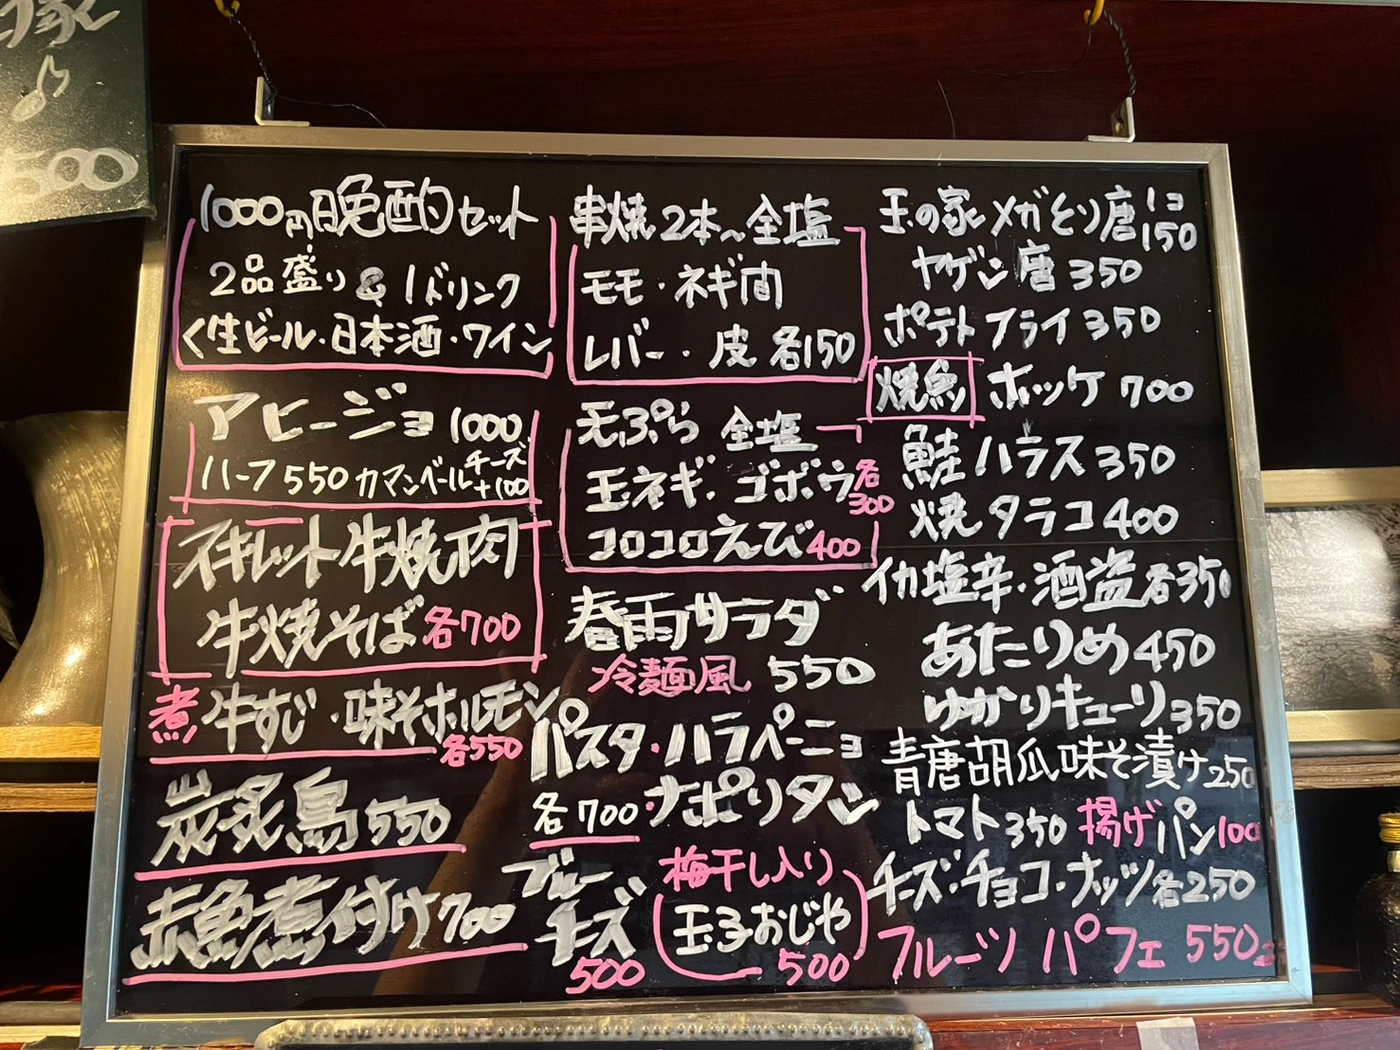 ♪
500
1000円晩酌セット
2品盛り&1ドリンク
く生ビール・日本酒・ワイン
アヒージョ1000
ハーフ550カマンベールチーズ+100
スキレット牛焼肉
牛焼そば各700
煮牛すじ・味そホルモン
各550
炭炙鳥550
赤魚煮付け700
串焼2本~全塩
モモ・ネギ間
レバー・皮各150
天ぷら 全塩
玉ネギ・ゴボウ各300
コロコロえび400
春雨サラダ
冷麺風 550
パスタ・ハラペーニョ
各700・ナポリタン
ブルーチーズ
500
梅干し入り
玉子おじや
500
玉の家メガとり唐1コ150
ヤゲン唐350
ポテトフライ350
焼魚 ホッケ 700
鮭ハラス350
焼タラコ400
イカ塩辛・酒盗各350
あたりめ450
ゆかりキューリ350
青唐胡瓜味そ漬け250
トマト350 揚げパン100
チーズ・チョコ・ナッツ各250
フルーツ パフェ 550